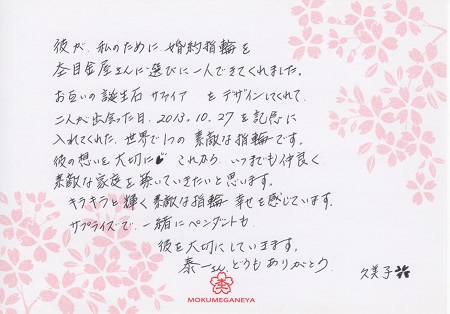 彼が、私のために、婚約指輪を
杢目金屋さんに選びに一人できてくれました。
お互いの誕生石 サファイア を デザインしてくれて、
二人が出会った日、2013.10.27を記念に
入れてくれた、世界で1つの素敵な指輪です。
彼の想いを大切に♥ これから、いつまでも仲良く、
素敵な家庭を築いていきたいと思います。
キラキラと輝く素敵な指輪 幸せを感じています。
サプライズで、一緒にペンダントも
彼を大切にしていきます。
泰一さん、どうもありがとう 久美子
MOKUMEGANEYA